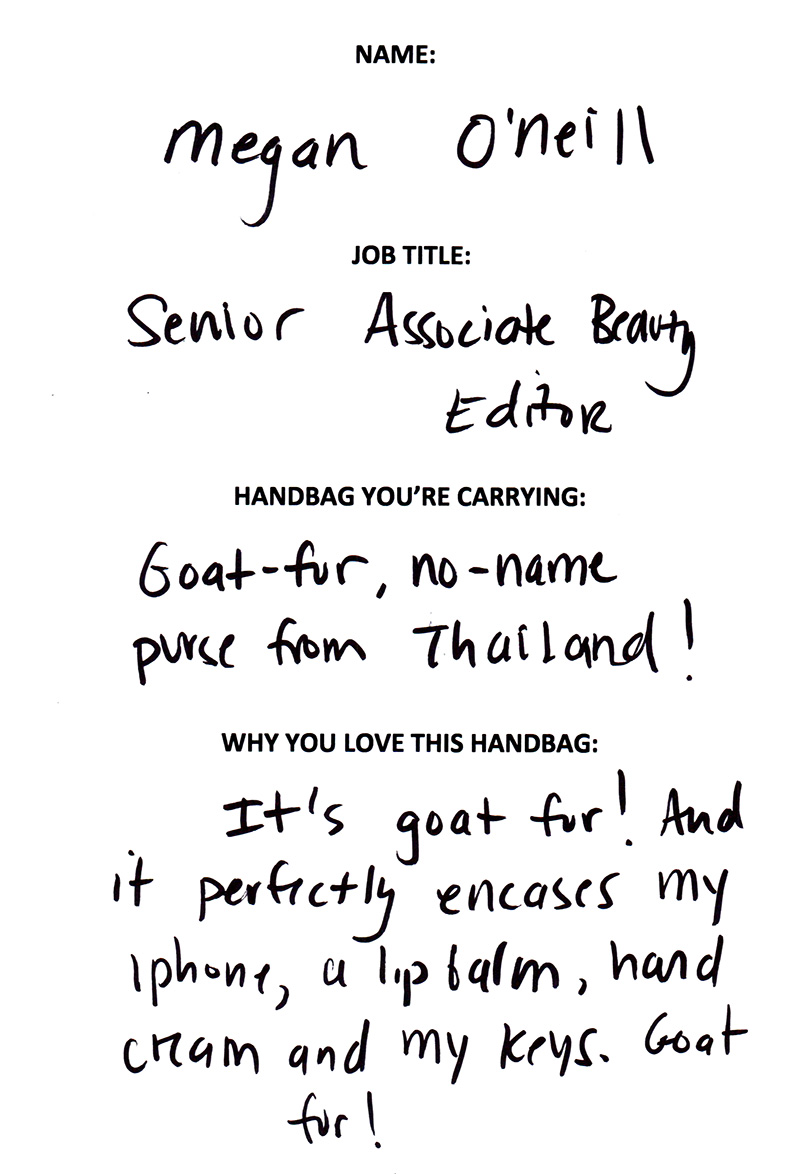 NAME:
Megan O'Neill
JOB TITLE:
Senior Associate Beauty
Editor
HANDBAG YOU'RE CARRYING:
Goat-fur, no-name
purse from Thailand!
WHY YOU LOVE THIS HANDBAG:
It's goat fur! And
it perfectly encases my
iphone, a lip balm, hand
cream and my keys. Goat
fur!